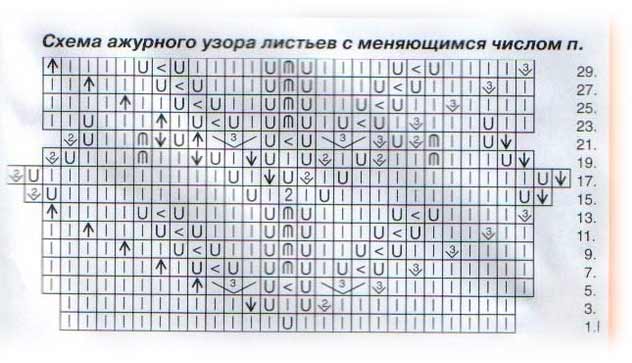 Схема ажурного узора листьев с меняющимся числом п.
29.
27.
25.
23.
21.
19.
17.
15.
13.
11.
9.
7.
5.
3.
1.